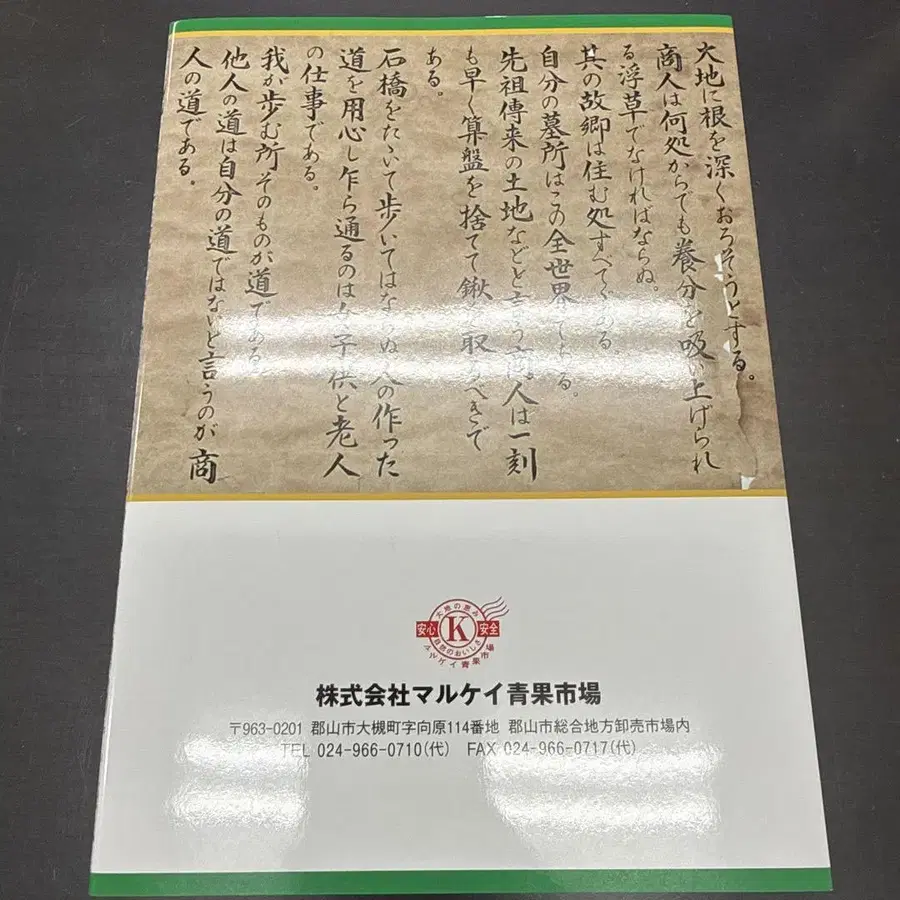 大地に根を深くおろそうとする。
商人は何処からでも養分を吸い上げられ
る浮草でなければならぬ。
其の故郷は住む処すべてである。
自分の墓所はこの全世界である。
先祖傳来の土地などと言う商人は一刻
も早く算盤を捨てて鍬を取るべきで
ある。
石橋をたゝいて歩いてはならぬ人の作った
道を用心し乍ら通るのは女子供と老人
の仕事である。
我が歩む所そのものが道である
他人の道は自分の道ではないと言うのが商
人の道である。
大地の恵み
安心 K 安全
自然のおいしさ
マルケイ青果市場
株式会社マルケイ青果市場
〒963-0201 郡山市大槻町字向原114番地 郡山市総合地方卸売市場内
TEL 024-966-0710(代) FAX 024-966-0717(代)